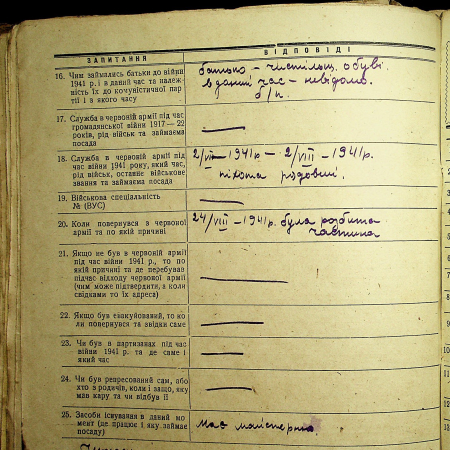 ЗАПИТАННЯ
ВІДПОВІДІ
16. Чим займались батьки до війни
1941 р. і в даний час та належ-
ність їх до комуністичної пар-
тії і з якого часу
батько – чистільщ. обуві.
в даний час – невідомо.
б/п.
17. Служба в червоній армії під час
громадянської війни 1917—22
років, рід військ та займаєма
посада
18. Служба в червоній армії під
час війни 1941 року, який час,
рід військ, останнє військове
звання та займаєма посада
2/VII – 1941 р – 2/VIII – 1941 р.
піхота рядовий.
19. Військова спеціальність
№ (ВУС)
20. Коли повернувся з червоної
армії та по якій причині
24/VIII – 1941 р. була розбита
частина
21. Якщо не був в червоній армії
під час війни 1941 р., то по
якій причині та де перебував
підчас відходу червоної армії
(чим може підтвердити, а коли
свідками то їх адреса)
22. Якщо був евакуйований, то ко-
ли повернувся та звідки саме
23. Чи був в партизанах під час
війни 1941 р. та де саме і
який час
24. Чи був репресований сам, або
хто з родичів, коли і защо, яку
мав кару та чи відбув її
25. Засоби існування в даний мо-
мент (де працює і яку займає
посаду)
має майстерню.